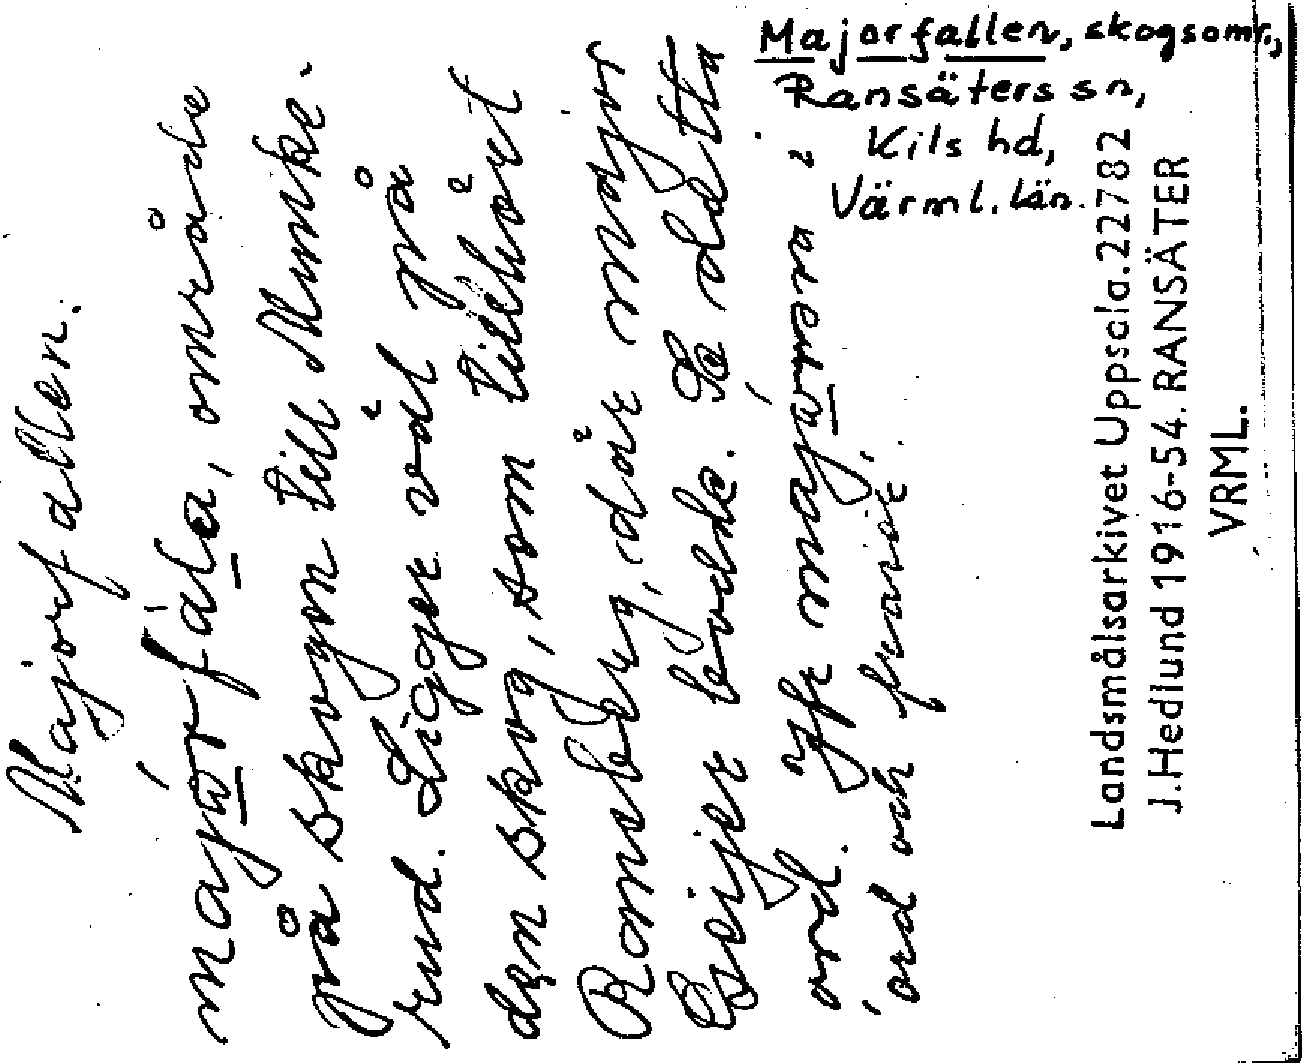 Majorfallen, skogsomr.,
Ransäters sn,
Kils hd,
Värml. län.
Majorfallen.
majo̲r fàla̲, område
på skogen till Munke-
rud. Ligger väl på
den skog, som tillhört
Ransberg, där major
Geijer bodde. Se detta
ord. Yfr majo̲ren i
ord och
Landsmålsarkivet Uppsala. 22782
J. Hedlund 1916-54. RANSÄTER
VRML.